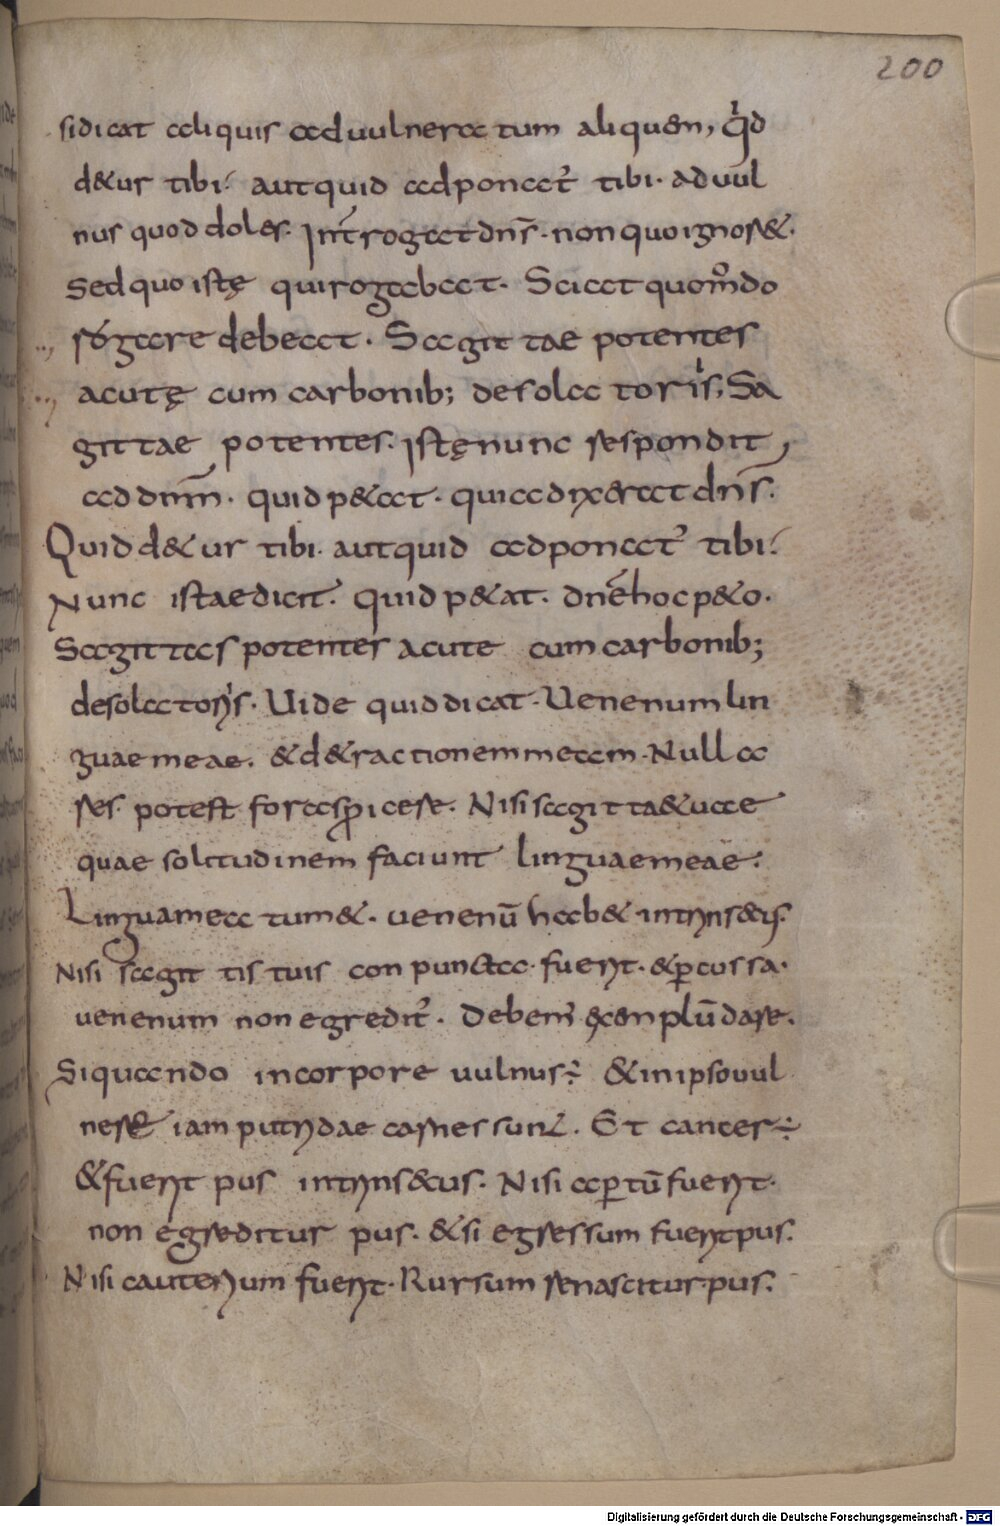 200
sidicat aliquis ad uulneratum aliquem, q̇d
d&ur tibi: aut quid adponat᷑ tibi. ad uul
nus quod doles. Inťrogat dn̄s. non quo ignos&.
Sed quo istę qui rogabat. Sciat quom̊do
rógare debeat. Sagittae potentes
acutę cum carbonib; desolatoriis, Sa
gittae potentes. istę nunc respondit,
ad dnm̄. quid p&at. quia dixerat dn̄s.
Quid d&ur tibi. aut quid adponat᷑ tibi:
Nunc istae dicit. quid p&at. dnē hoc p&o.
Sagittas potentes acute cum carbonib;
desolatoriis. Uide quid dicat. Uenenum lin
guae meae. & d&ractionem meam. Nulla
res potest foras ꝓicere. Nisi sagitta& uae
quae solitudinem faciunt linguae meae:
Lingua mea tum&. uenenū hab& intrinsecus.
Nisi sagittis tuis conpuncta fuerit. & ꝑcussa.
uenenum non egredit᷑. Debem᷑ exemplū dare.
Siquando in corpore uulnus: & in ipso uul
nere iam putridae carnes sunt. Et cancer:
& fuerit pus intrinsecus. Nisi aꝑtū fuerit.
non egreditur pus. & si egressum fuerit pus.
Nisi cauterium fuerit. Rursum renascitur pus.
Digitalisierung gefördert durch die Deutsche Forschungsgemeinschaft - DFG